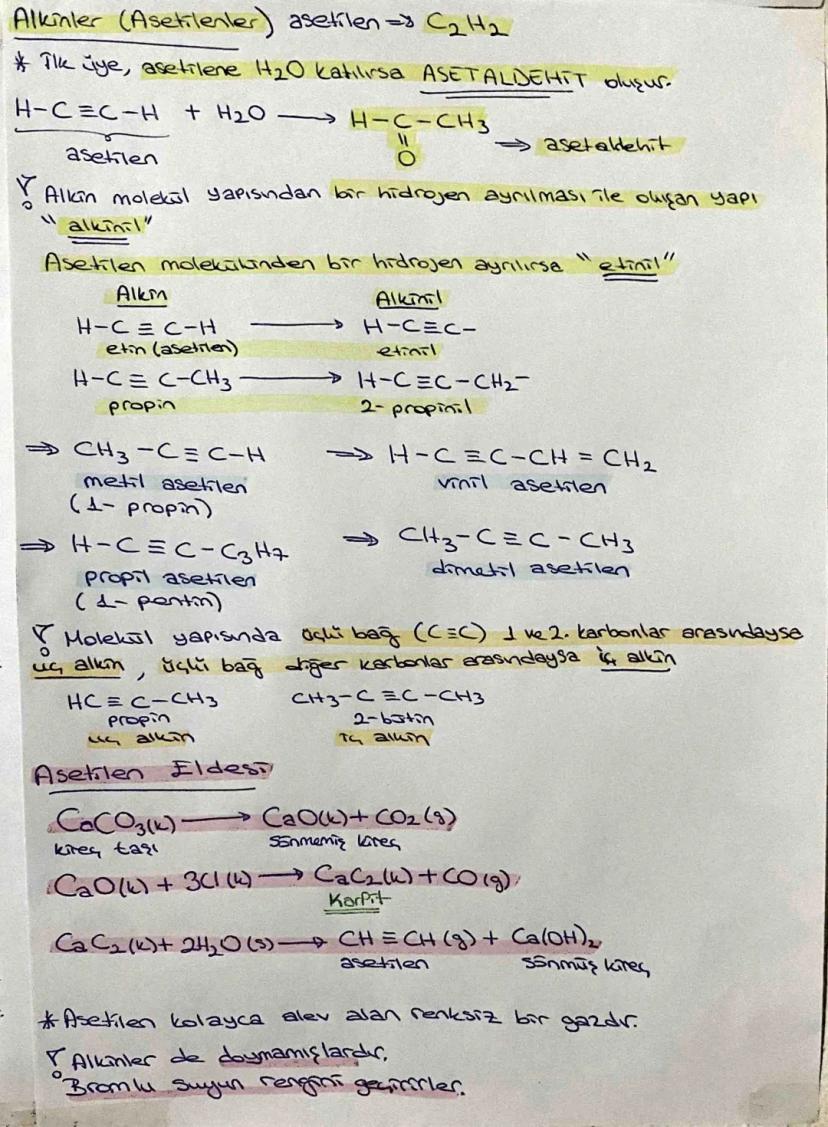 Alkinler (Asetilenler) asetilen ⇒ C₂H₂
* İlk üye, asetilene H₂O katılırsa ASETALDEHİT oluşur.
H-C≡C-H + H₂O ⟶ H-C-CH₃
|| ⇒ asetaldehit
asetilen O
! Alkin molekül yapısından bir hidrojen ayrılması ile oluşan yapı
"alkinil"
Asetilen molekülünden bir hidrojen ayrılırsa "etinil"
Alkin Alkinil
H-C≡C-H ⟶ H-C≡C-
etin (asetilen) etinil
H-C≡C-CH₃ ⟶ H-C≡C-CH₂-
propin 2-propinil
⇒ CH₃-C≡C-H ⇒ H-C≡C-CH=CH₂
metil asetilen vinil asetilen
(1-propin)
⇒ H-C≡C-C₃H₇ ⇒ CH₃-C≡C-CH₃
propil asetilen dimetil asetilen
(1-pentin)
! Molekül yapısında üçlü bağ (C≡C) 1 ve 2. karbonlar arasındaysa
uç alkin, üçlü bağ diğer karbonlar arasındaysa iç alkin
HC≡C-CH₃ CH₃-C≡C-CH₃
propin 2-bütin
uç alkin iç alkin
Asetilen Eldesi
CaCO₃(k) ⟶ CaO(k) + CO₂(g)
kireç taşı sönmemiş kireç
CaO(k) + 3Cl(k) ⟶ CaC₂(k) + CO(g)
Karpit
CaC₂(k) + 2H₂O(s) ⟶ CH≡CH(g) + Ca(OH)₂
asetilen sönmüş kireç
* Asetilen kolayca alev alan renksiz bir gazdır.
! Alkinler de doymamışlardır.
Bromlu suyun rengini geçirirler.